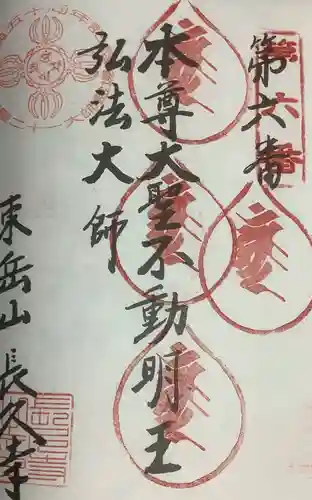 第六番
第六番
本尊大聖不動明王
弘法大師
東岳山長久寺